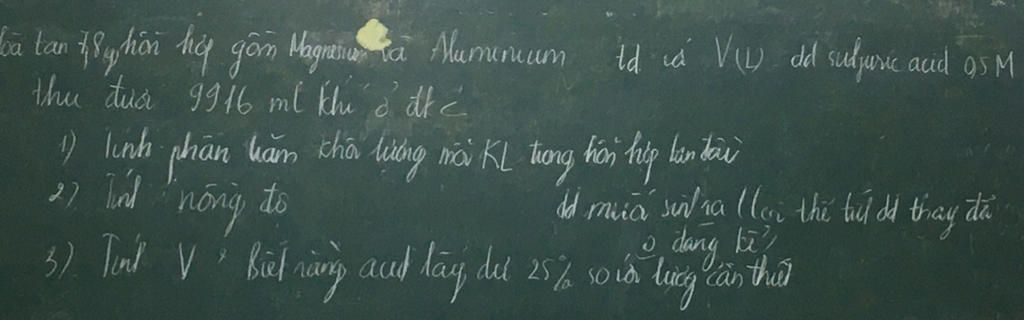 Hoà tan 7,8g hỗn hợp gồm Magnesium và Aluminium td với V(L) dd sulfuric acid 0,5M
thu được 9916 ml khí ở đkc
1) Tính phần trăm khối lượng mỗi KL trong hỗn hợp ban đầu
2) Tính nồng độ dd muối sinh ra (Coi thể tích dd thay đổi
ở dạng kể)
3) Tính V, Biết rằng acid lấy dư 25% so với lượng cần thiết